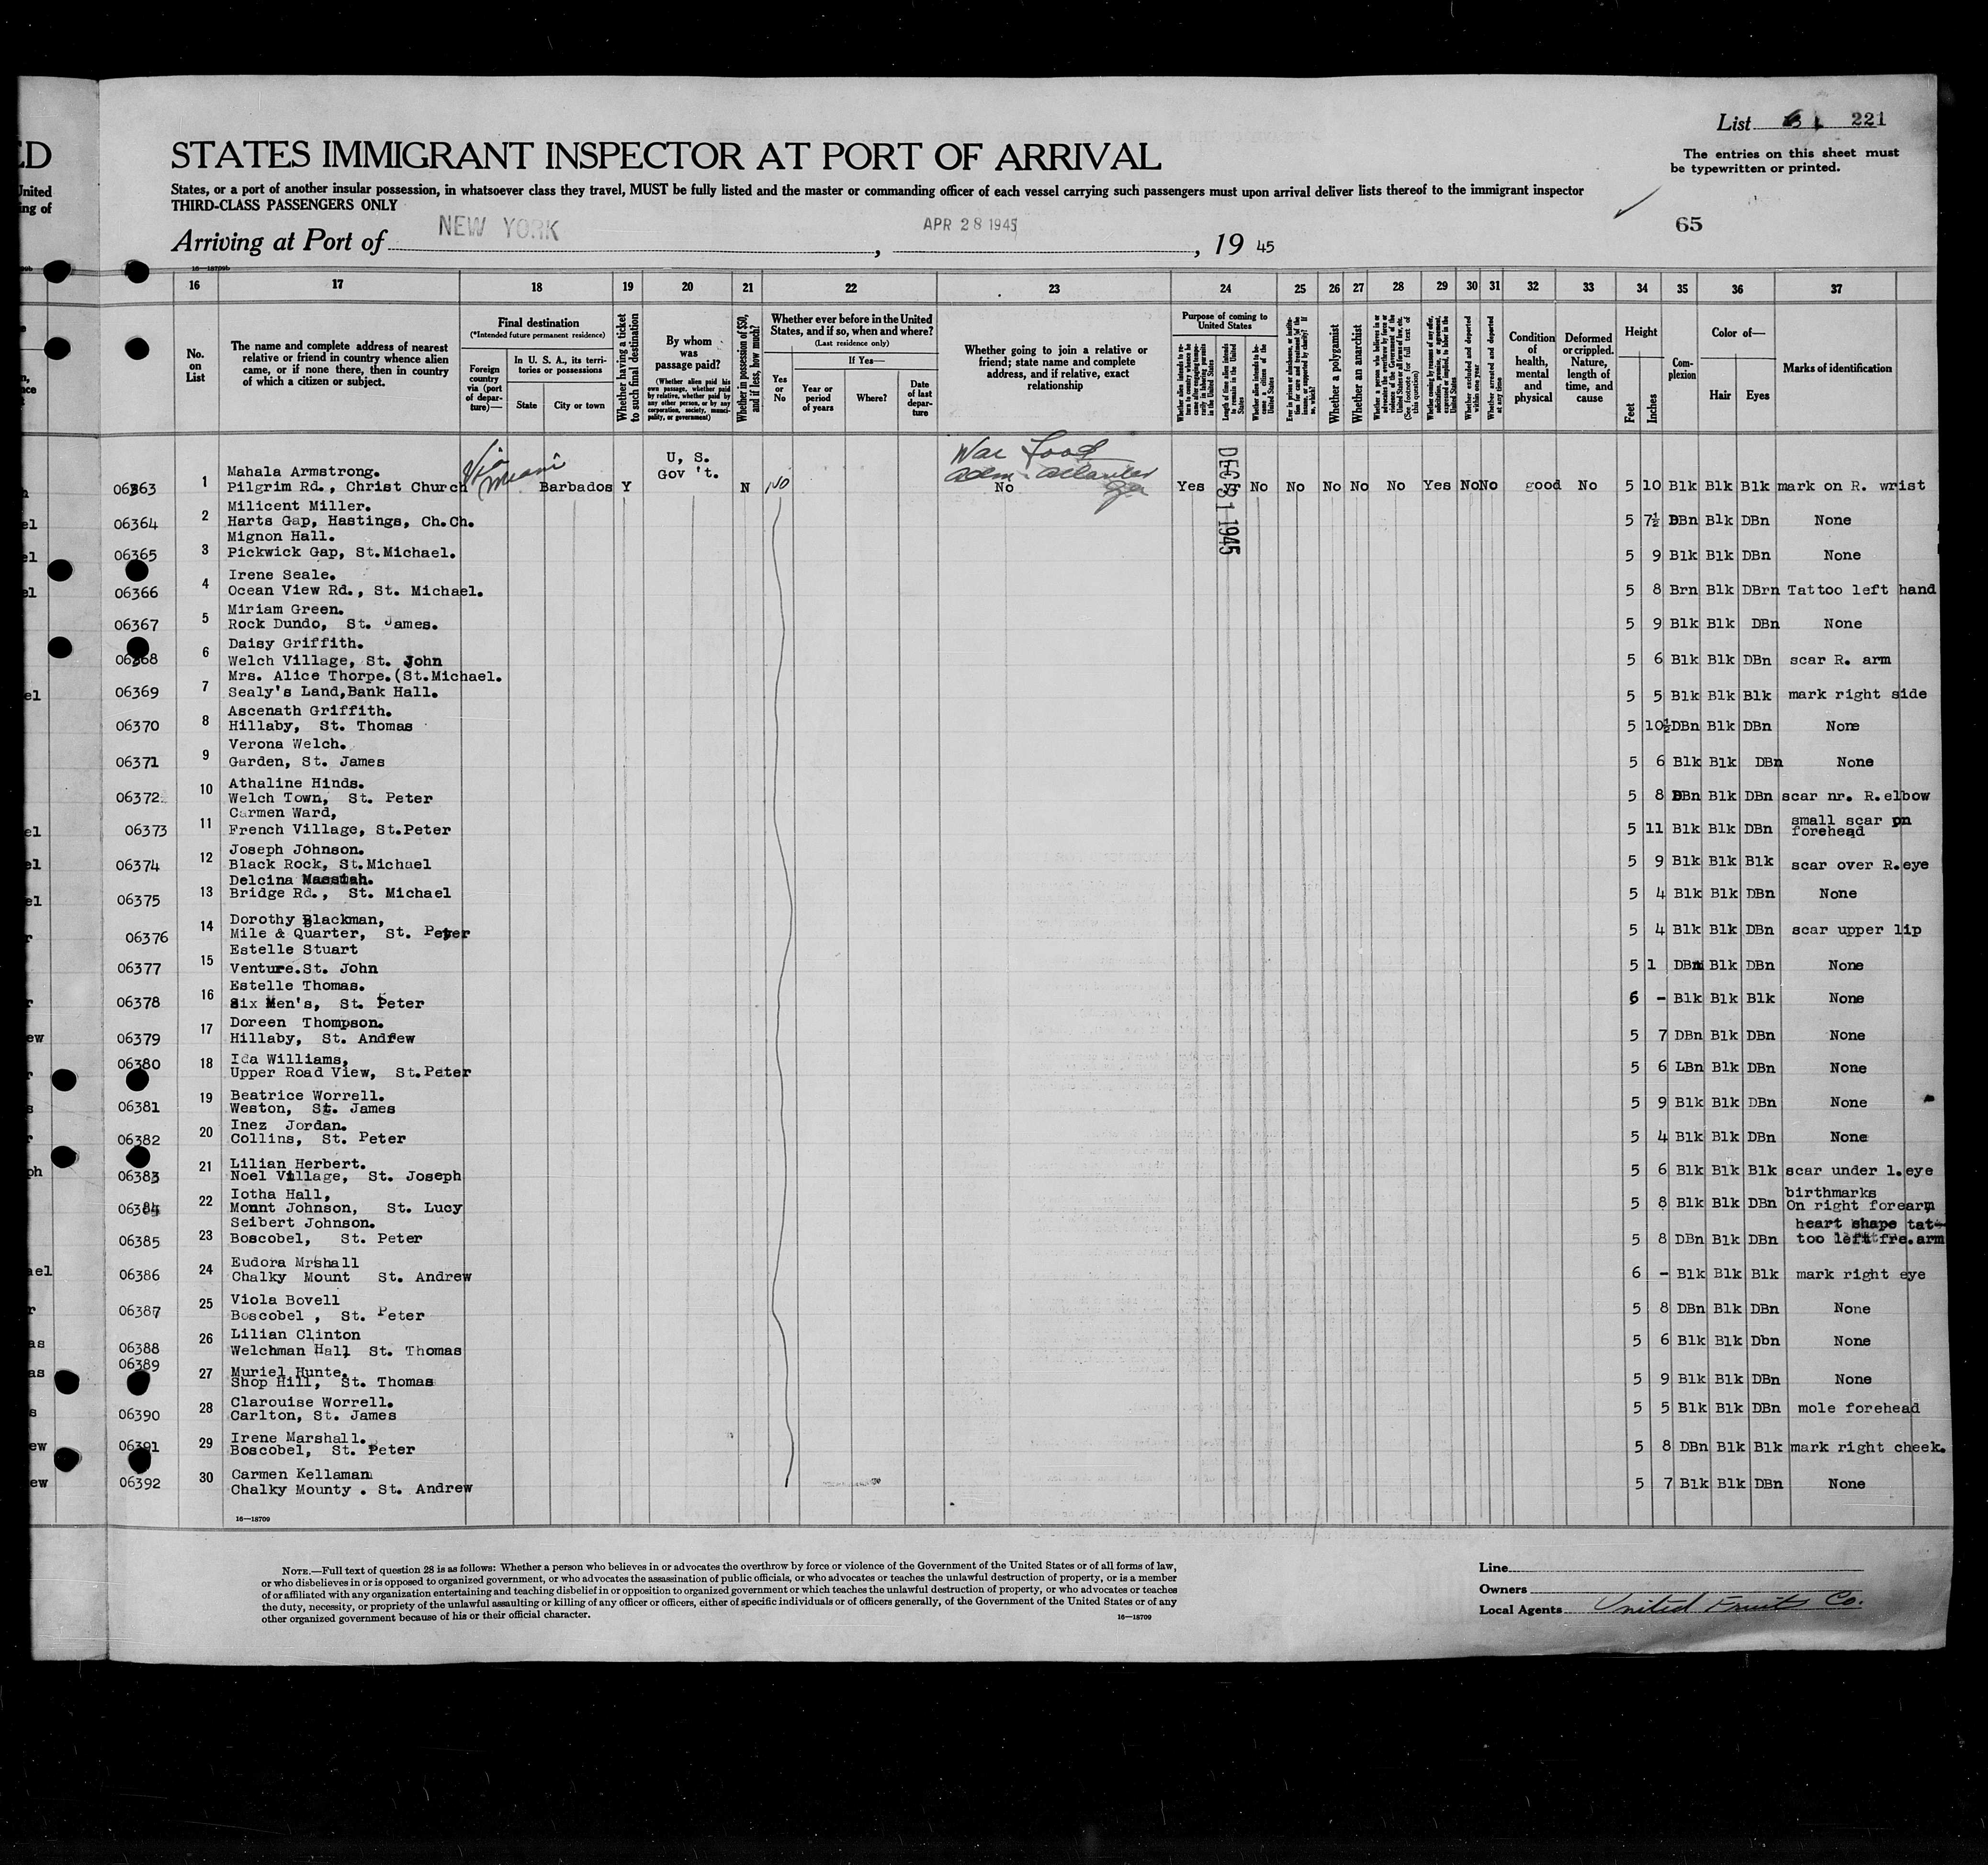 List 221
The entries on this sheet must
be typewritten or printed.
ED
STATES IMMIGRANT INSPECTOR AT PORT OF ARRIVAL
United
States, or a port of another insular possession, in whatsoever class they travel, MUST be fully listed and the master or commanding officer of each vessel carrying such passengers must upon arrival deliver lists thereof to the immigrant inspector
ing of
THIRD-CLASS PASSENGERS ONLY
65
Arriving at Port of NEW YORK , APR 28 1945 , 19 45
16 17 18 19 20 21 22 23 24 25 26 27 28 29 30 31 32 33 34 35 36 37
No. on List
The name and complete address of nearest relative or friend in country whence alien came, or if none there, then in country of which a citizen or subject.
Final destination
(*Intended future permanent residence)
Foreign country via (port of departure)—
In U. S. A., its territories or possessions
State
City or town
Whether having a ticket to such final destination
By whom was passage paid?
(Whether alien paid his own passage, whether paid by relative, whether paid by any other person, or by any corporation, society, municipality, or government)
Whether in possession of $50, and if less, how much?
Whether ever before in the United States, and if so, when and where?
(Last residence only)
Yes or No
If Yes—
Year or period of years
Where?
Date of last departure
Whether going to join a relative or friend; state name and complete address, and if relative, exact relationship
Purpose of coming to United States
Length of time alien intends to remain in the United States
Whether alien intends to become a citizen of the United States
Whether a polygamist
Whether an anarchist
Whether excluded and deported within one year
Whether arrested and deported at any time
Condition of health, mental and physical
Deformed or crippled. Nature, length of time, and cause
Height
Feet
Inches
Complexion
Color of—
Hair
Eyes
Marks of identification
Via Miami
U, S.
Gov 't.
War Food
Adm. Atlanta
Ga
DEC 31 1945
Mahala Armstrong.
06363 1 Pilgrim Rd., Christ Church Barbados Y N No No Yes No No No No No Yes No No good No 5 10 Blk Blk Blk mark on R. wrist
Milicent Miller.
06364 2 Harts Gap, Hastings, Ch.Ch. 5 7½ DBn Blk DBn None
Mignon Hall.
06365 3 Pickwick Gap, St.Michael. 5 9 Blk Blk DBn None
Irene Seale.
06366 4 Ocean View Rd., St. Michael. 5 8 Brn Blk DBrn Tattoo left hand
Miriam Green.
06367 5 Rock Dundo, St. James. 5 9 Blk Blk DBn None
Daisy Griffith.
06368 6 Welch Village, St. John 5 6 Blk Blk DBn scar R. arm
Mrs. Alice Thorpe.(St.Michael.
06369 7 Sealy's Land,Bank Hall. 5 5 Blk Blk Blk mark right side
Ascenath Griffith.
06370 8 Hillaby, St. Thomas 5 10½ DBn Blk DBn None
Verona Welch.
06371 9 Garden, St. James 5 6 Blk Blk DBn None
Athaline Hinds.
06372 10 Welch Town, St. Peter 5 8 DBn Blk DBn scar nr. R.elbow
Carmen Ward,
06373 11 French Village, St.Peter 5 11 Blk Blk DBn small scar on forehead
Joseph Johnson.
06374 12 Black Rock, St.Michael 5 9 Blk Blk Blk scar over R.eye
Delcina Massiah.
06375 13 Bridge Rd., St. Michael 5 4 Blk Blk DBn None
Dorothy Blackman,
06376 14 Mile & Quarter, St. Peter 5 4 Blk Blk DBn scar upper lip
Estelle Stuart
06377 15 Venture.St. John 5 1 DBn Blk DBn None
Estelle Thomas.
06378 16 Six Men's, St. Peter 6 - Blk Blk Blk None
Doreen Thompson.
06379 17 Hillaby, St. Andrew 5 7 DBn Blk DBn None
Ida Williams,
06380 18 Upper Road View, St.Peter 5 6 LBn Blk DBn None
Beatrice Worrell.
06381 19 Weston, St. James 5 9 Blk Blk DBn None
Inez Jordan.
06382 20 Collins, St. Peter 5 4 Blk Blk DBn None
Lilian Herbert.
06383 21 Noel Village, St. Joseph 5 6 Blk Blk Blk scar under l.eye
Iotha Hall, birthmarks
06384 22 Mount Johnson, St. Lucy 5 8 Blk Blk DBn On right forearm
Seibert Johnson. heart shape tat-
06385 23 Boscobel, St. Peter 5 8 DBn Blk DBn too left fre.arm
Eudora Mrshall
06386 24 Chalky Mount St. Andrew 6 - Blk Blk Blk mark right eye
Viola Bovell
06387 25 Boscobel , St. Peter 5 8 DBn Blk DBn None
Lilian Clinton
06388 26 Welchman Hall St. Thomas 5 6 Blk Blk Dbn None
Muriel Hunte.
06389 27 Shop Hill, St. Thomas 5 9 Blk Blk DBn None
Clarouise Worrell.
06390 28 Carlton, St. James 5 5 Blk Blk DBn mole forehead
Irene Marshall.
06391 29 Boscobel, St. Peter 5 8 DBn Blk Blk mark right cheek.
Carmen Kellaman
06392 30 Chalky Mounty . St. Andrew 5 7 Blk Blk DBn None
16—18709
NOTE.—Full text of question 28 is as follows: Whether a person who believes in or advocates the overthrow by force or violence of the Government of the United States or of all forms of law,
or who disbelieves in or is opposed to organized government, or who advocates the assassination of public officials, or who advocates or teaches the unlawful destruction of property, or is a member
of or affiliated with any organization entertaining and teaching disbelief in or opposition to organized government or which teaches the unlawful destruction of property, or who advocates or teaches
the duty, necessity, or propriety of the unlawful assaulting or killing of any officer or officers, either of specific individuals or of officers generally, of the Government of the United States or of any
other organized government because of his or their official character.
16—18709
Line
Owners
Local Agents United Fruits Co.